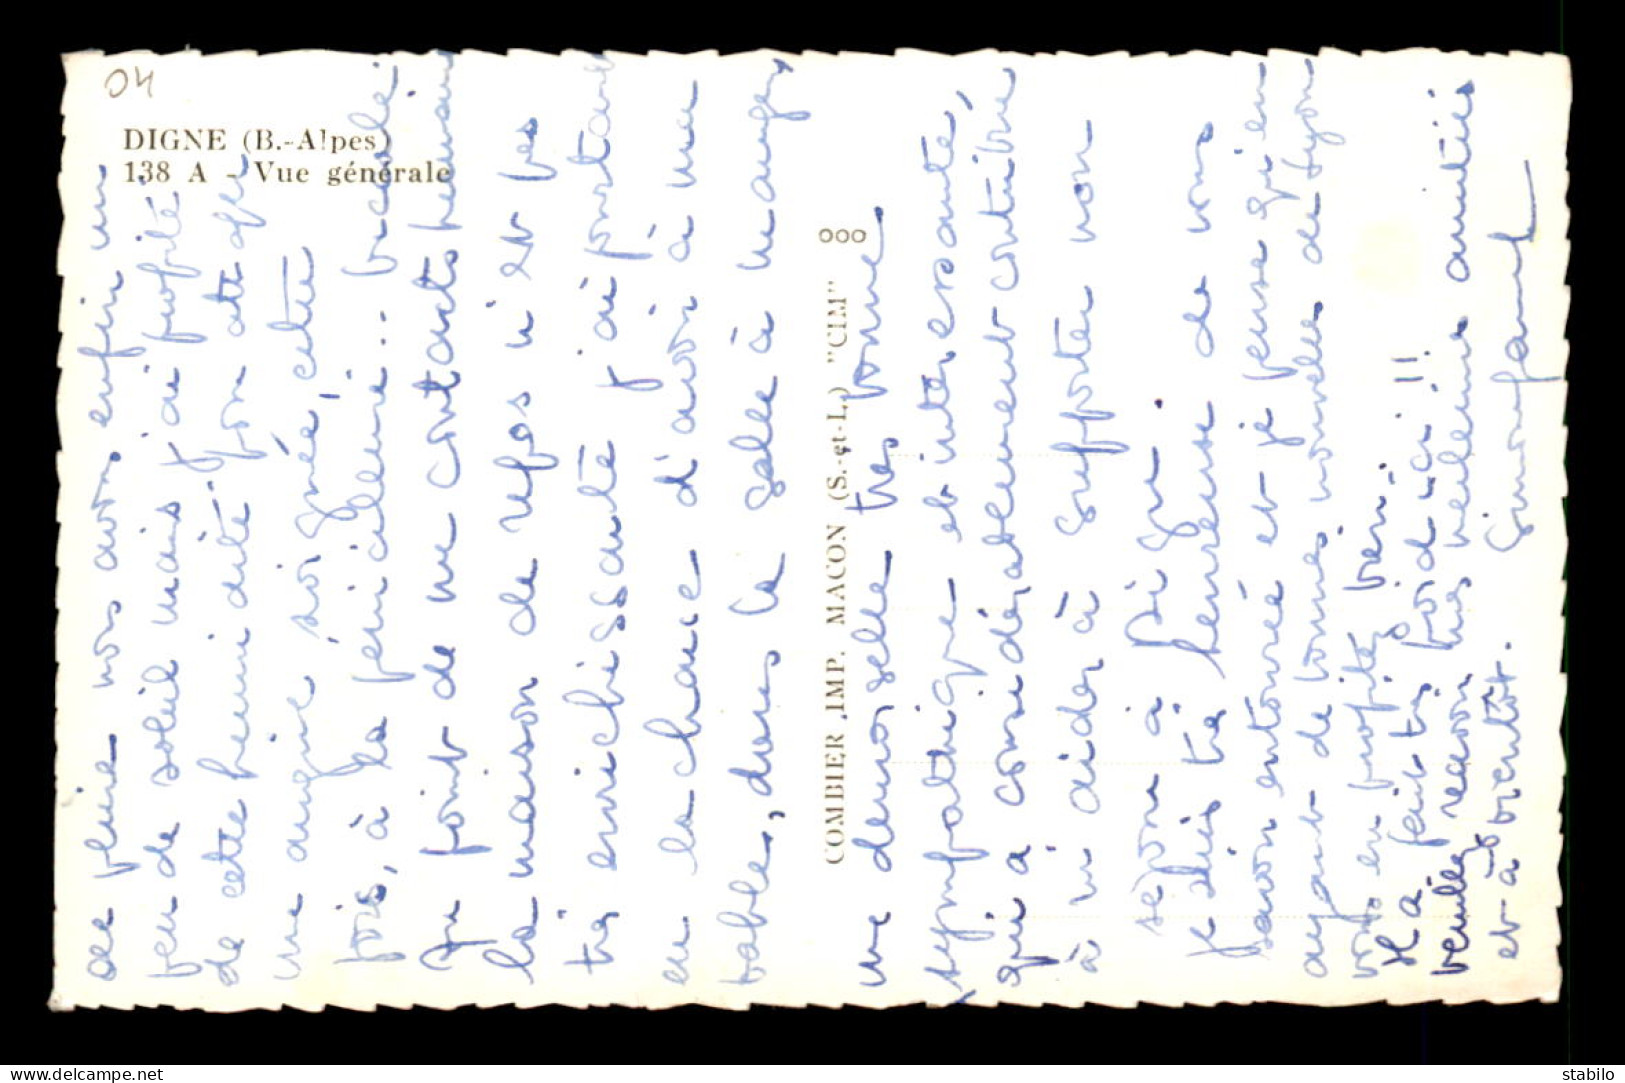 04
DIGNE (B.-Alpes)
138 A - Vue générale
COMBIER IMP. MACON (S.-et-L.) "CIM"
de pluie nous avons enfin un
peu de soleil mais j'ai profité
de cette humidité pour
une angine soignée, cette
fois, à la pénicilline..
point de vue contacts humains
la maison de repos n'est pas
très enrichissante j'ai pourtant
eu la chance d'avoir à ma
table, dans la salle à manger
une demoiselle très bonne
sympathique et intéressante,
qui a considérablement contribué
à m'aider à supporter mon
séjour à Digne.
Je suis très heureuse de vous
savoir entourée et je pense qu'en
ayant de bonnes nouvelles de Lyon
vous en profitez bien.
Il a fait très froid ici !!
veuillez recevoir mes meilleures amitiés
et à bientôt.